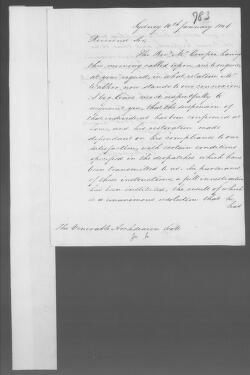 983
Sydney 14th January 1826
Reverend Sir,
The Revd. Mr. Cowper having
this morning called upon me to enquire
at your request, in what relation Mr.
Walker, now stands to our connexion,
I beg leave most respectfully to
acquaint you, that the suspension of
that individual has been confirmed at
home, and his restoration made
dependant on his compliance to our
satisfaction, with certain conditions
specified in the dispatches which have
been transmitted to us. In pursuance
of these instructions, a full investigation
has been instituted, the result of which
is a unanimous resolution that he
had
The Venerable Archdeacon Scott